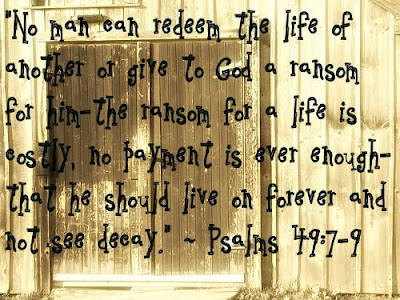 "No man can redeem the life of
another or give to God a ransom
for him-the ransom for a life is
costly, no payment is ever enough-
that he should live on forever and
not see decay." ~ Psalms 49:7-9